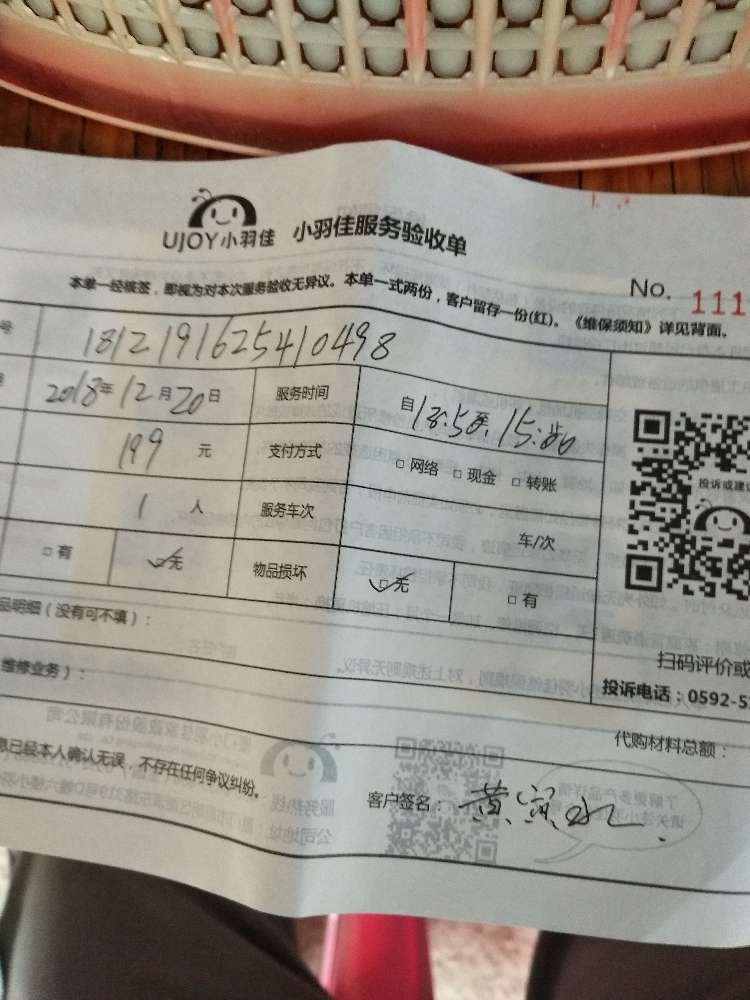 UJOY小羽佳 小羽佳服务验收单
No. 111
本单一经核签，即视为对本次服务验收无异议。本单一式两份，客户留存一份(红)。《维保须知》详见背面。
号 1812191625410498
2018年12月20日 服务时间 自13:50至15:50
199 元 支付方式 □网络 □现金 □转账
1 人 服务车次 车/次
□有 □无 物品损坏 □无 □有
投诉或建议
品明细（没有可不填）：
维修业务）：
扫码评价或
投诉电话：0592-5
代购材料总额：
息已经本人确认无误，不存在任何争议纠纷。
客户签名：黄宝水